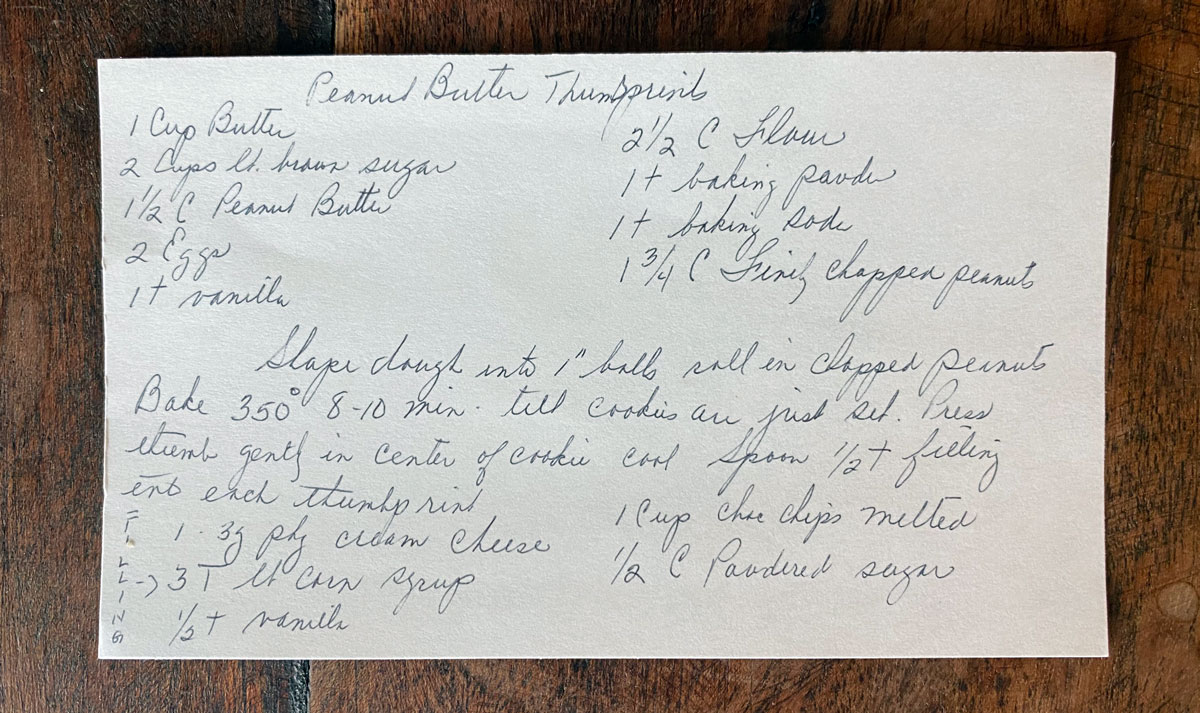 Peanut Butter Thumbprints
1 Cup Butter
2 Cups lt. brown sugar
1 1/2 C Peanut Butter
2 Eggs
1 t vanilla
2 1/2 C Flour
1 t baking powder
1 t baking soda
1 3/4 C Finely chopped peanuts
Shape dough into 1" balls roll in chopped peanuts
Bake 350° 8-10 min. till cookies are just set. Press
thumb gently in center of cookie cool Spoon 1/2 t filling
into each thumbprint
FILLING →
1 - 3oz pkg cream cheese
3 T lt corn syrup
1/2 t vanilla
1 Cup choc chips melted
1/2 C Powdered sugar